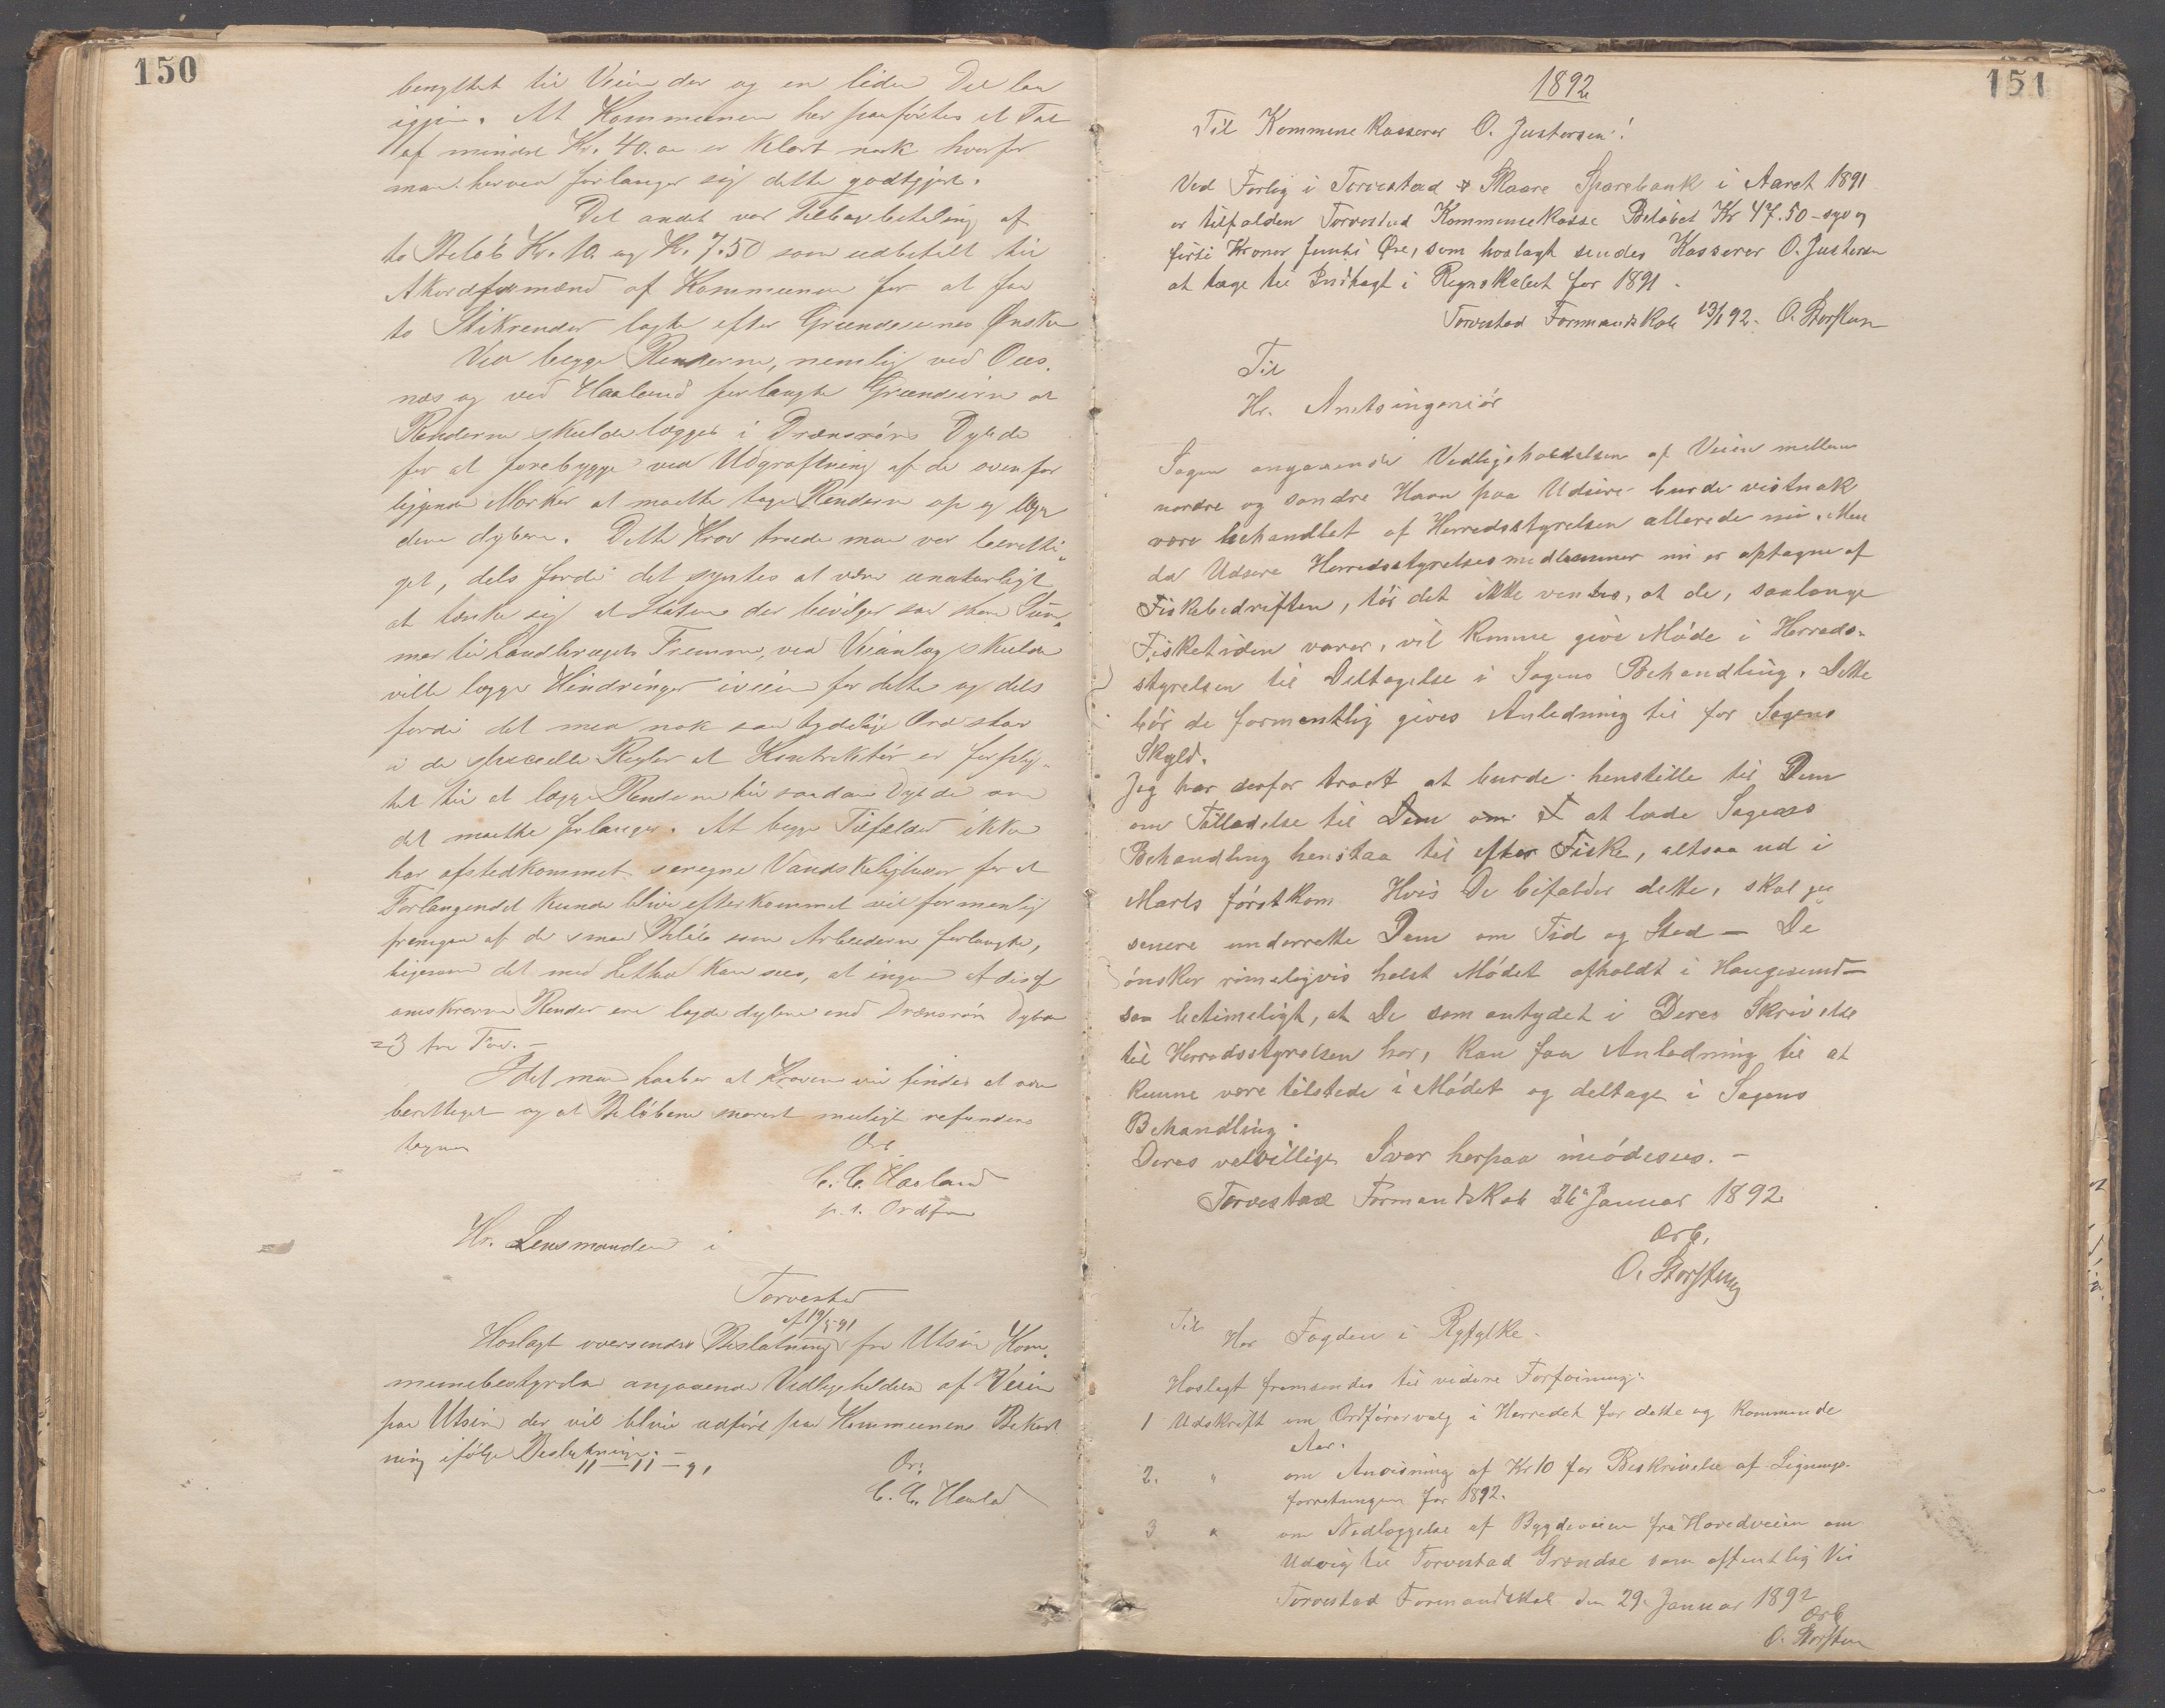 150
benyttet til Veien der og en liden Del laa
igjen. At Kommunen her paaførtes et Tab
af mindst Kr. 40.00 er klart nok hvorfor
man herved forlanger sig dette godtgjort.
Det andet var Tilbagebetaling af
to Beløb Kr. 10 og Kr. 7.50 som udbetalt til
Akordformænd af Kommunen for at faa
to Stikrender lagte efter Grundeiernes Ønske
Ved begge Renderne, nemlig ved Oes-
næs og ved Haaland forlangte Grundeierne at
Renderne skulde lægges i Drænsrørs Dybde
for at forebygge ved Udgrøftning af de ovenfor
liggende Marker at maatte tage Renderne op og lægge
dem dybere. Dette Krav troede man var beretti-
get, dels fordi det syntes at være unaturligt
at tænke sig at Staten der bevilger saa store Sum-
mer til Landbrugets Fremme, ved Veianlæg skulde
ville lægge Hindringer iveien for dette og dels
fordi det med nok saa tydelige Ord staar
i de specielle Regler at Kontraktør er forplig-
tet til at lægge Renderne til saadan Dybde som
det maatte forlanges. At begge Tilfælder ikke
har afstedkommet særegne Vanskeligheder for at
Forlangendet kunde blive efterkommet vil formentlig
fremgaa af de smaa Beløb som Arbeiderne forlangte,
ligesom det med Lethed kan sees, at ingen af disse
omskrevne Render ere lagde dybere end Drænsrørs Dybde
=3 tre Fod. –
Idet man haaber at Kraven vil findes at være
berettiget og at Beløbene snarest muligt refunderes
tegner
Ærb.
C. C. Haaland
p. t. Ordfør
Hr. Lensmanden i
Torvestad
af 19/5 91
Hoslagt oversendes Beslutning fra Utsire Kom-
munebestyrelse angaaende Vedligeholdelse af Veien
paa Utsire der vil blive udført paa Kommunens Bekost
ning ifølge Beslutning. –
11 – 11 – 91
Ær.
C. C. Haaland
151
1892
Til Kommunekasserer O. Justersen!
Ved Forlig i Torvestad & Skaare Sparebank i Aaret 1891
er tilfalden Torvestad Kommunekasse Beløbet Kr 47.50 – syv og
firti Kroner femti Øre, som hoslagt sendes Kasserer O. Justersen
at tage til Indtægt i Regnskabet for 1891.
Torvestad Formandskab 13/1 92. O. Storsten
Til
Hr. Amtsingeniør
Sagen angaaende Vedligeholdelsen af Veien mellem
nordre og søndre Havn paa Udsire burde vistnok
være behandlet af Herredsstyrelsen allerede nu. Men
da Udsire Herredsstyrelsesmedlemmer nu er optagne af
Fiskebedriften, tør det ikke ventes, at de, saalænge
Fisketiden varer, vil kunne give Møde i Herreds-
styrelsen til Deltagelse i Sagens Behandling. Dette
bør de formentlig gives Anledning til for Sagens
Skyld.
Jeg har derfor troet at burde henstille til Dem
om Tilladelse til Dem om T at lade Sagens
Behandling henstaa til efter Fiske, altsaa ud i
Marts førstkom. Hvis De bifalder dette, skal jeg
senere underrette Dem om Tid og Sted – De
ønsker rimeligvis helst Mødet afholdt i Haugesund –
saa betimeligt, at De som antydet i Deres Skrivelse
til Herredsstyrelsen her, kan faa Anledning til at
kunne være tilstede i Mødet og deltage i Sagens
Behandling.
Deres velvillige Svar herpaa imødesees. –
Torvestad Formandskab 26 Januar 1892
Ærb.
O. Storsten
Til
Herr Fogden i Ryfylke.
Hoslagt fremsendes til videre Forføining:
1 Udskrift om Ordførervalg i Herredet for dette og kommende
Aar.
2. " om Anvisning af Kr 10 for Beskrivelse af Lignings-
forretningen for 1892.
3 " om Nedlæggelse af Bygdeveien fra Hovedveien om
Udvig til Torvestad Grændse som offentlig Vei
Torvestad Formandskab den 29. Januar 1892
Ærb
O. Storsten